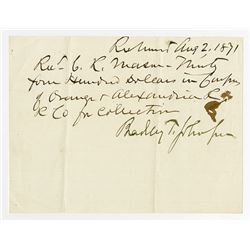 Richmond Aug 2. 1871
Rec'd C. R. Mason - Ninty
four Hundred Dollars in Coupons
of Orange & Alexandria R
R Co for Collection
Bradley T. Johnson